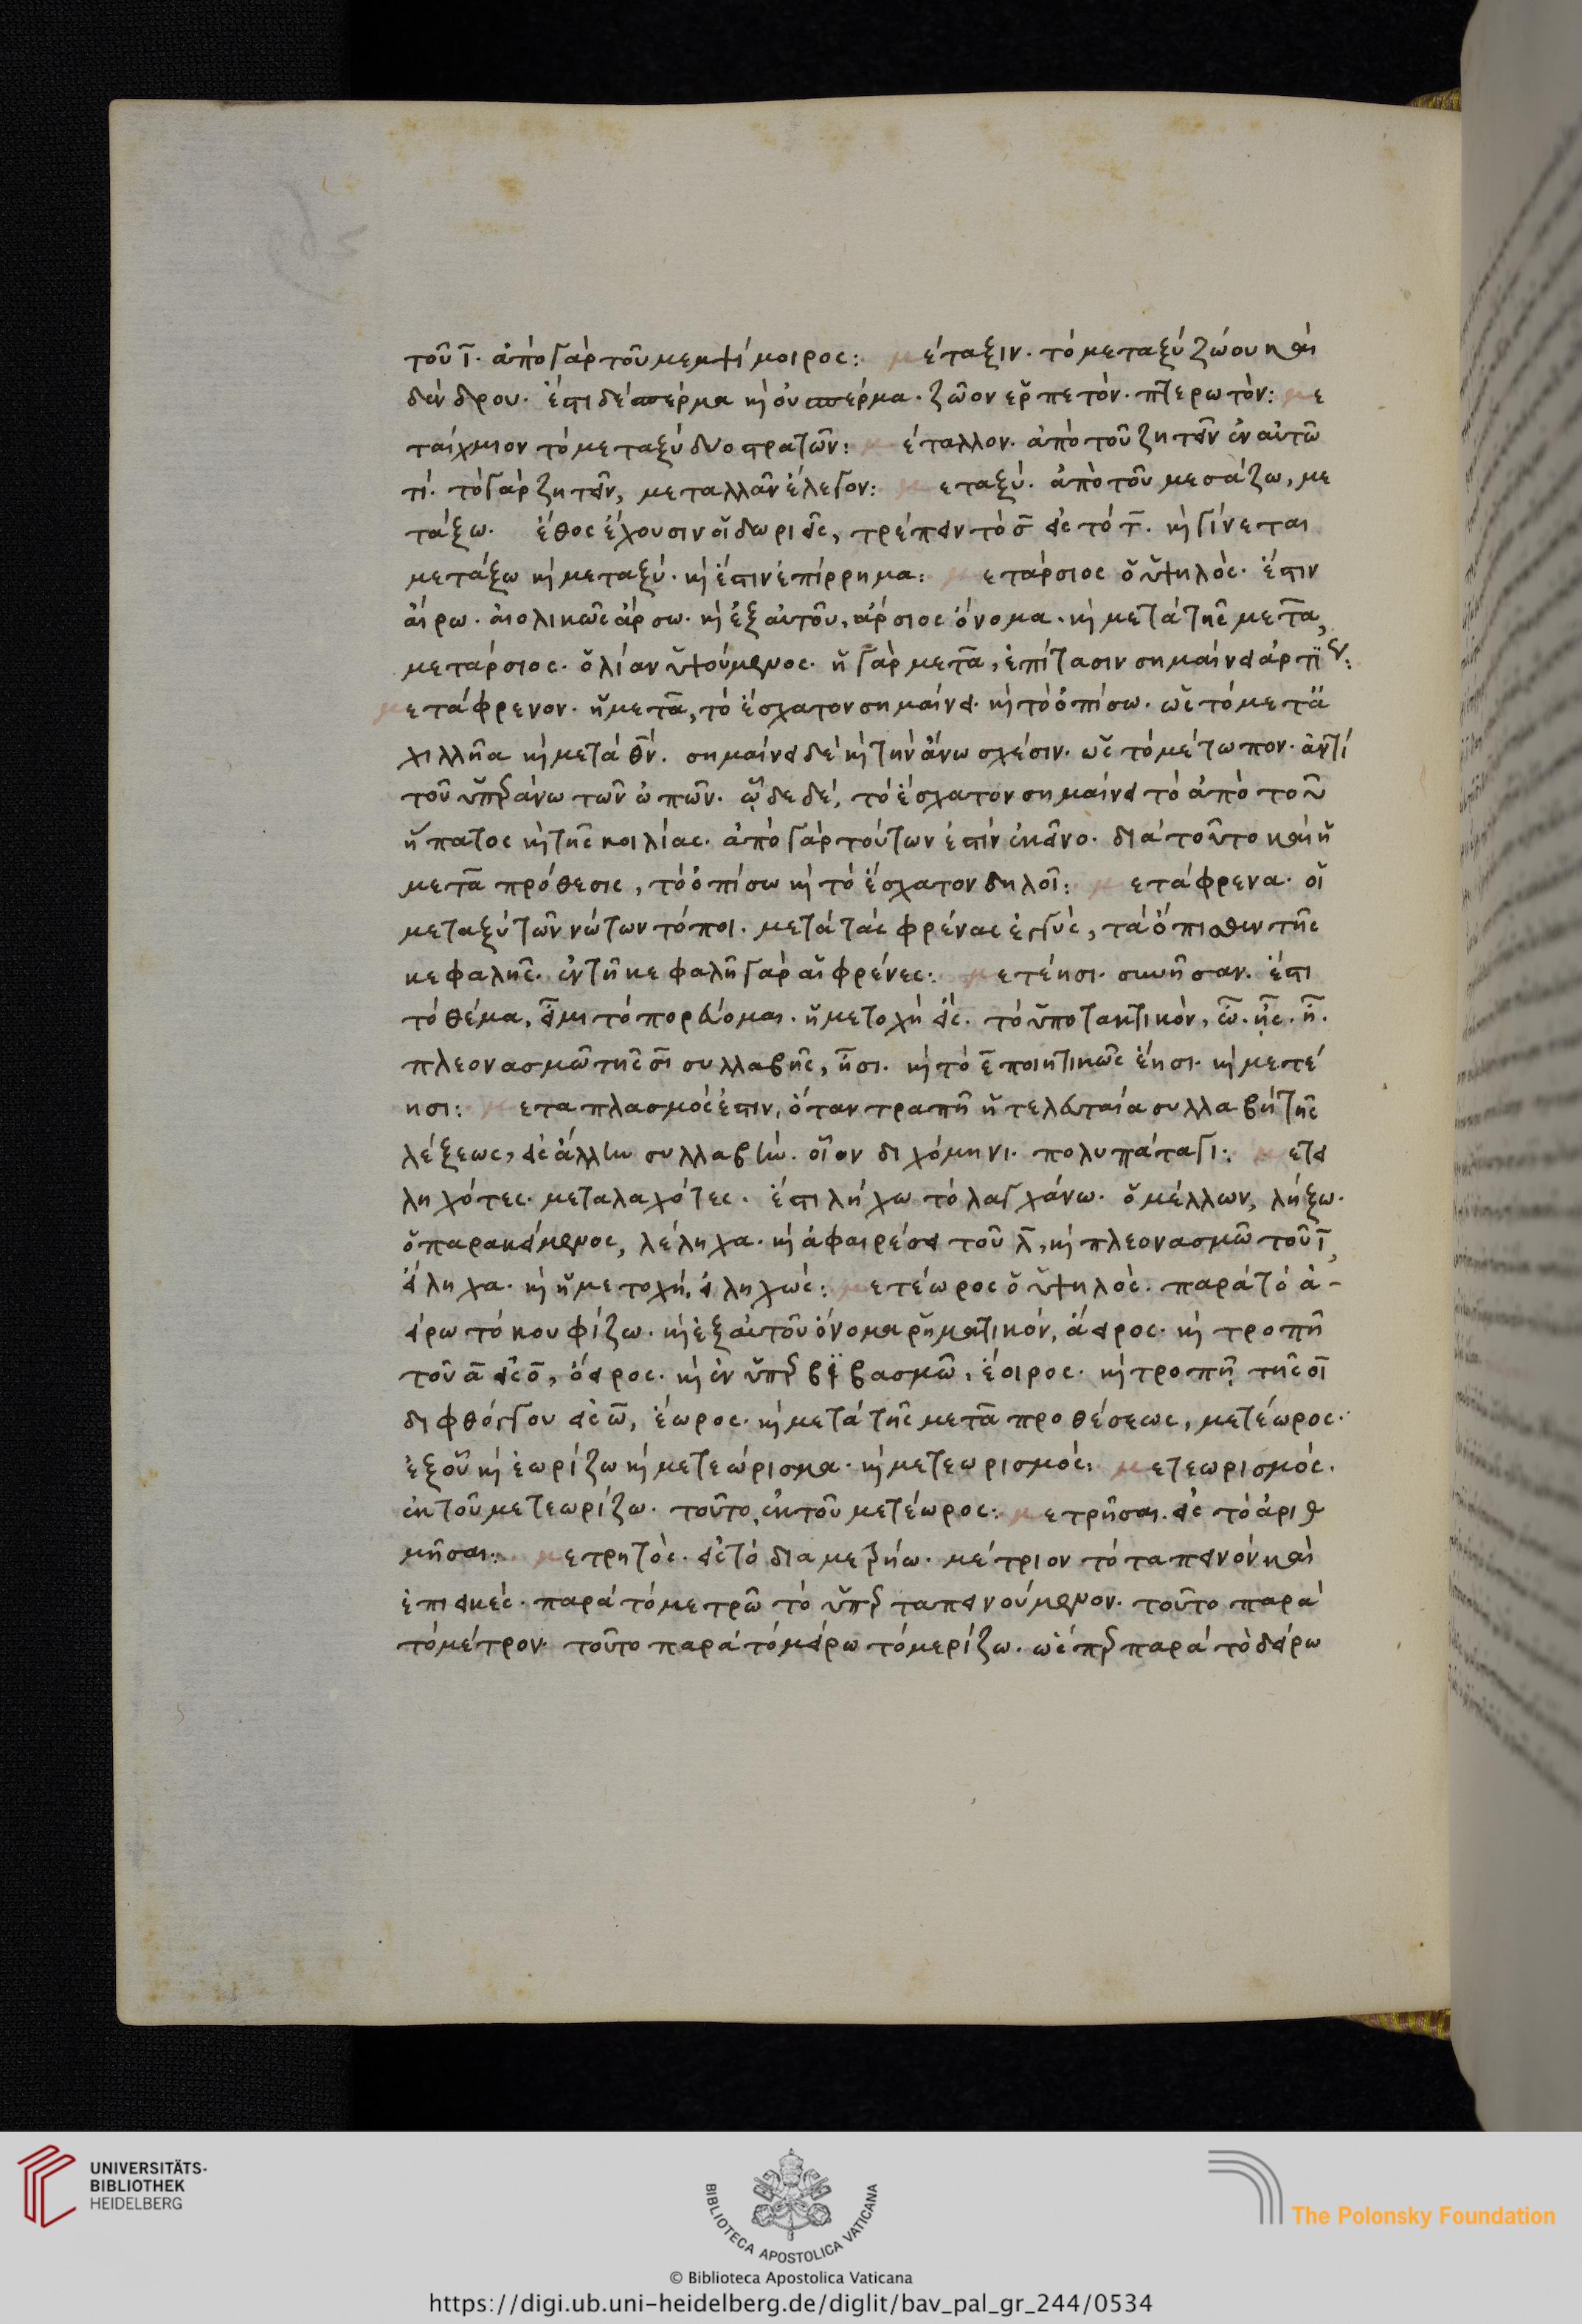 τοῦ ι̅. ἀπὸ γὰρ τοῦ μεμψίμοιρος: μέταξιν. τὸ μεταξὺ ζώου καὶ
δένδρου. ἔστι δὲ σπέρμα κὶ οὐ σπέρμα. ζῶον ἑρπετόν. πτερωτόν: με
ταίχμιον τὸ μεταξὺ δυο στρατῶν: μέταλλον. ἀπὸ τοῦ ζητεῖν ἐν αὐτῶ
τί. τὸ γὰρ ζητεῖν, μεταλλᾶν ἔλεγον: μεταξύ. ἀπὸ τοῦ μεσάζω, με
τάξω. ἔθος ἔχουσιν οἱ δωριεῖς, τρέπειν τὸ σ̅ εἰς τὸ τ̅. κὶ γίνεται
μετάξω κὶ μεταξύ. κὶ ἔστιν ἐπίρρημα: μετάρσιος ὁ ὑψηλός. ἔστιν
αἴρω. αἰολικῶς ἄρσω. κὶ ἐξ αὐτοῦ, ἄρσιος ὄνομα. κὶ μετὰ τῆς μετα̅,
μετάρσιος. ὁ λίαν ὑψούμενος. ἡ γὰρ μετα̅, ἐπίτασιν σημαίνει ἀρτι
μετάφρενον. ἡ μετα̅, τὸ ἔσχατον σημαίνει. κὶ τὸ ὀπίσω. ὡς τὸ μετ ἀ
χιλλῆα κὶ μετὰ θ̅ν. σημαίνει δὲ κὶ τὴν ἄνω σχέσιν. ὡς τὸ μέτωπον. ἀντὶ
τοῦ ὑπεράνω τῶν ὠπῶν. ὧδε δὲ, τὸ ἔσχατον σημαίνει τὸ ἀπὸ τοῦ
ἥπατος κὶ τῆς κοιλίας. ἀπὸ γὰρ τούτων ἐστὶν ἐκεῖνο. διὰ τοῦτο καὶ ἡ
μετα̅ πρόθεσις, τὸ ὀπίσω κὶ τὸ ἔσχατον δηλοῖ: μετάφρενα. οἱ
μεταξὺ τῶν νώτων τόποι. μετὰ τὰς φρένας ἐγγὺς, τὰ ὄπισθεν τῆς
κεφαλῆς. ἐν τῆ κεφαλῆ γὰρ αἱ φρένες: μετέησι. συνῆσαν. ἔστι
τὸ θέμα, εἶμι τὸ πορεύομαι. ἡ μετοχὴ εἲς. τὸ ὑποτακτικὸν, ὦ. ῆς. ῆ.
πλεονασμῶ τῆς σι̅ συλλαβῆς, ῆσι. κὶ τὸ ε̅ ποιητικῶς ἔησι. κὶ μετέ
ησι: μεταπλασμός ἐστιν, ὅταν τραπῆ ἡ τελευταία συλλαβὴ τῆς
λέξεως, εἰς ἄλλην συλλαβήν. οἷον διχόμηνι. πολυπάταγι: μετει
ληχότες. μεταλαχότες. ἔστι λήχω τὸ λαγχάνω. ὁ μέλλων, λήξω.
ὁ παρακείμενος, λέληχα. κὶ ἀφαιρέσει τοῦ λ̅, κὶ πλεονασμῶ τοῦ ι̅,
εἴληχα. κὶ ἡ μετοχή, εἰληχώς: μετέωρος ὁ ὑψηλός. παρὰ τὸ ἀ-
είρω τὸ κουφίζω. κὶ ἐξ αὐτοῦ ὄνομα ῥηματικόν, ἄειρος. κὶ τροπῆ
τοῦ α̅ εἰς ο̅, ὄειρος. κὶ ἐν ὑπερβιβασμῶ, ἔοιρος. κὶ τροπῆ τῆς οι̅
διφθόγγου εἰς ω̅, ἔωρος. κὶ μετὰ τῆς μετα̅ προθέσεως, μετέωρος.
ἐξ οὗ κὶ ἐωρίζω κὶ μετεώρισμα. κὶ μετεωρισμός: μετεωρισμός.
ἐκ τοῦ μετεωρίζω. τοῦτο, ἐκ τοῦ μετέωρος: μετρῆσαι. εἰς τὸ ἀριθ
μῆσαι: μετρητός. εἰς τὸ διαμετρήω. μέτριον τὸ ταπεινὸν καὶ
ἐπιεικές. παρὰ τὸ μετρῶ τὸ ὑπερταπεινούμενον. τοῦτο παρὰ
τὸ μέτρον. τοῦτο παρὰ τὸ μείρω τὸ μερίζω. ὡς περ παρὰ τὸ δείρω
UNIVERSITÄTS-
BIBLIOTHEK
HEIDELBERG
BIBLIOTECA APOSTOLICA VATICANA
The Polonsky Foundation
© Biblioteca Apostolica Vaticana
https://digi.ub.uni-heidelberg.de/diglit/bav_pal_gr_244/0534